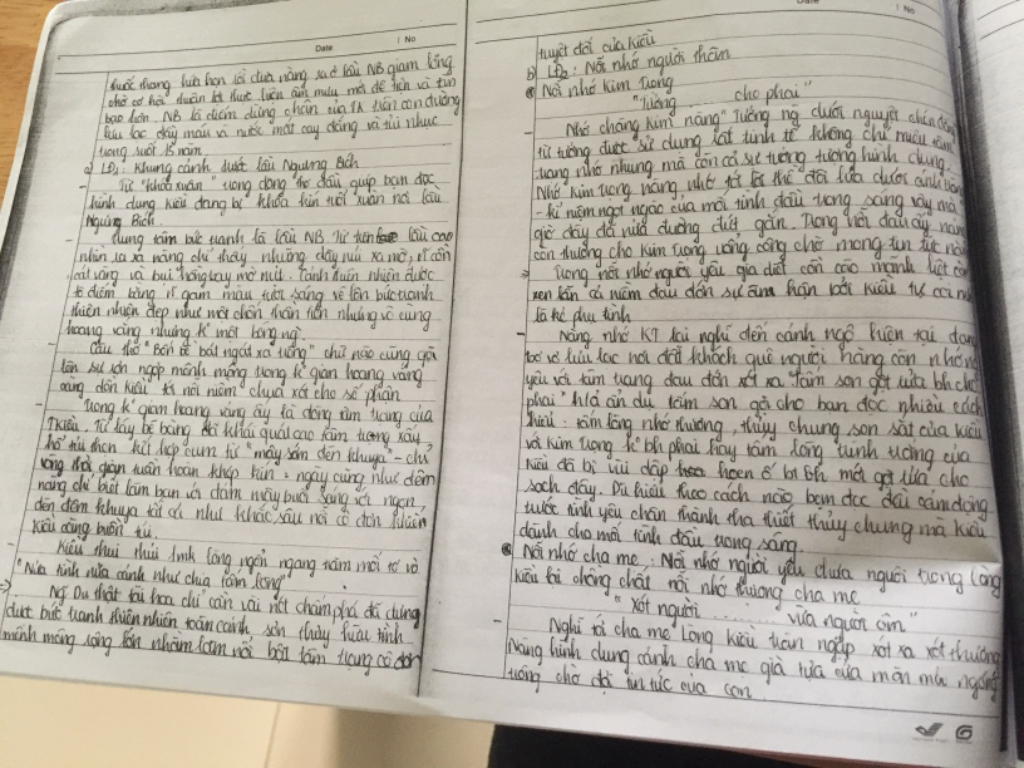 Date | No
thuốc thang hứa hẹn rồi đưa nàng ra ở lầu NB giam lỏng
chờ cơ hội thuận lợi thực hiện âm mưu mới đê tiện và tàn
bạo hơn. NB là điểm dừng chân của TK trên con đường
lưu lạc đầy máu và nước mắt cay đắng và tủi nhục
trong suốt 15 năm.
a) LĐ1: Khung cảnh trước lầu Ngưng Bích
- Từ "khóa xuân" trong dòng thơ đầu giúp bạn đọc
hình dung Kiều đang bị khóa kín tuổi xuân nơi lầu
Ngưng Bích
- Trung tâm bức tranh là lầu NB. Từ trên lầu cao
nhìn ra xa nàng chỉ thấy những dãy núi xa mờ, cồn
cát vàng và bụi hồng bay mờ mịt. Cảnh thiên nhiên được
tô điểm bằng gam màu tươi sáng vẽ lên bức tranh
thiên nhiên đẹp như một chốn thần tiên nhưng vô cùng
hoang vắng nhưng k một bóng ng
Câu thơ "Bốn bề bát ngát xa trông" chữ nào cũng gợi
lên sự rợn ngợp mênh mông trong k gian hoang vắng
càng dồn Kiều tới nỗi niềm chua xót cho số phận
- Trong k gian hoang vắng ấy là dòng tâm trạng của
TKiều. Từ láy bẽ bàng đã khái quát cao tâm trạng xấu
hổ tủi thẹn kết hợp cụm từ "mây sớm đèn khuya" - chỉ
vòng thời gian tuần hoàn khép kín: ngày cũng như đêm
nàng chỉ biết làm bạn với đám mây buổi sáng với ngọn
đèn đêm khuya tất cả như khắc sâu nỗi cô đơn khiến
Kiều càng buồn tủi.
- Kiều thui thủi 1mk lòng ngổn ngang trăm mối tơ vò
"Nửa tình nửa cảnh như chia tấm lòng"
=> Ng Du thật tài hoa chỉ cần vài nét chấm phá đã dựng
được bức tranh thiên nhiên toàn cảnh, sơn thủy hữu tình
mênh mông rộng lớn nhằm làm nổi bật tâm trạng cô đơn
Date | No
tuyệt đối của Kiều
b) LĐ2: Nỗi nhớ người thân
* Nỗi nhớ Kim Trọng
"Tưởng ........ cho phai"
- Nhớ chàng Kim nàng "Tưởng ng dưới nguyệt chén đồng
từ tưởng được sử dụng rất tinh tế không chỉ miêu tâm
trạng nhớ nhung mà còn cả sự tưởng tượng hình dung.
Nhớ Kim Trọng nàng nhớ tới lời thề đôi lứa dưới ánh trăng
- kỉ niệm ngọt ngào của mối tình đầu trong sáng vậy mà
giờ đây đã nửa đường đứt gãn. Trong nỗi đau ấy nàng
còn thương cho Kim Trọng uổng công chờ mong tin tức nàng
=> Trong nỗi nhớ người yêu da diết cồn cào mãnh liệt còn
xen lẫn cả niềm đau đớn sự ân hận bởi Kiều tự coi mk
là kẻ phụ tình
- Nàng nhớ KT lại nghĩ đến cảnh ngộ hiện tại đang
bơ vơ lưu lạc nơi đất khách quê người nàng còn nhớ ng
yêu với tâm trạng đau đớn xót xa "Tấm son gột rửa bh cho
phai" h/a ẩn dụ tấm son gợi cho bạn đọc nhiều cách
hiểu: tấm lòng nhớ thương, thủy chung son sắt của Kiều
với Kim Trọng k bh phai hay tấm lòng trinh trắng của
Kiều đã bị vùi dập hoen ố bh mới gột rửa cho
sạch đây. Dù hiểu theo cách nào bạn đọc đều cảm động
trước tình yêu chân thành tha thiết thủy chung mà Kiều
dành cho mối tình đầu trong sáng.
* Nỗi nhớ cha mẹ: Nỗi nhớ người yêu chưa nguôi trong lòng
Kiều lại chồng chất nỗi nhớ thương cha mẹ
"Xót người ........ vừa người ôm"
- Nghĩ tới cha mẹ lòng Kiều tràn ngập xót xa xót thương
Nàng hình dung cảnh cha mẹ già tựa cửa mòn mỏi ngóng
trông chờ đợi tin tức của con